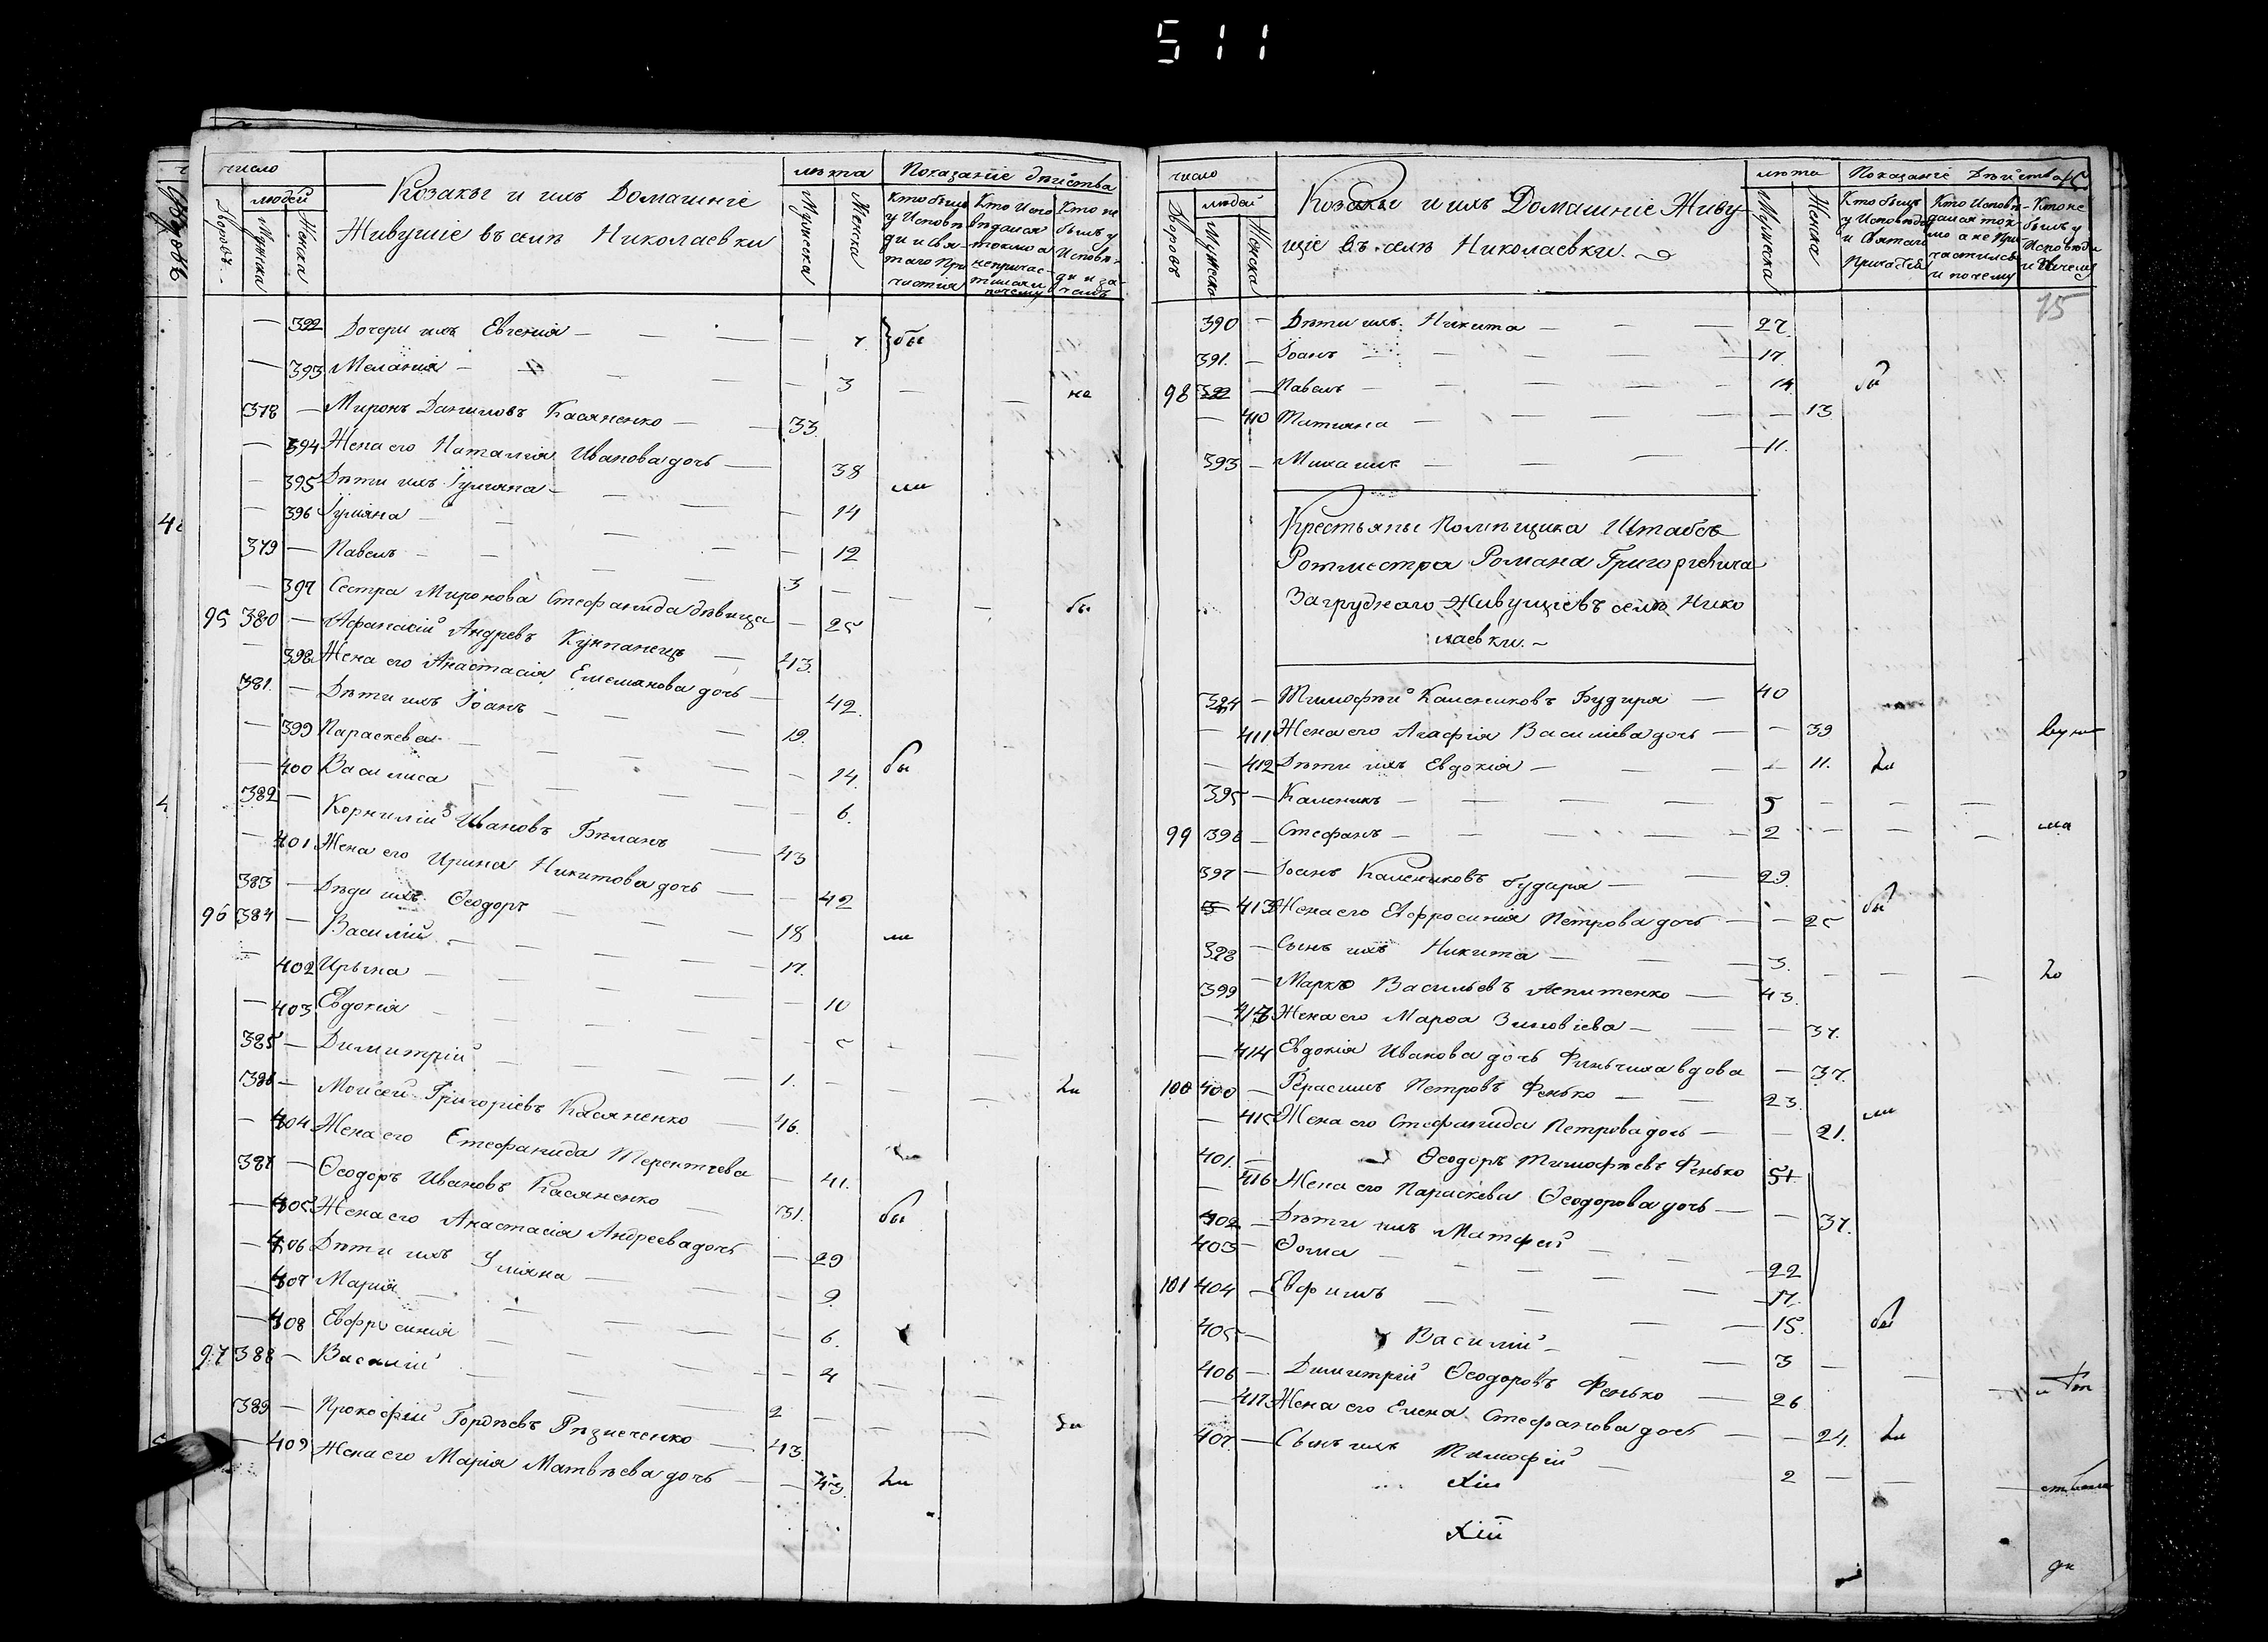 511
число
людей
Дворовъ
Мужска
Женска
Козаки и ихъ Домашніе
Живущіе въ селѣ Николаевки
лѣта
Мужеска
Женска
Показаніе дѣйства
Кто былъ у Исповѣди и Свя-таго Причастія
Кто Исповѣдался токмо а непричас-тился и почему
Кто не былъ у Исповѣ-ди и за-чемъ
— 392 Дочери ихъ Евгенія — — — 7. бы
— 393 Меланія — — — 3 — — не
378 — Миронъ Даниловъ Касяненко — 33.
— 394 Жена его Наталія Иванова дочь — 38
— 395 Дѣти ихъ Іуліяна — — — 14 ли
— 396 Іуліяна — — — 12
379 — Павелъ — — — 3 — — — бы
— 397 Сестра Миронова Стефанида дѣвица — 25
95 380 — Афанасій Андреевъ Кунпанецъ — 43.
— 398 Жена его Анастасія Емеліянова дочь — 42.
381. — Дѣти ихъ Іоанъ — — 19.
— 399 Параскева — — — 14. бы
— 400 Василиса — — — 6.
382 — Корнилій Ивановъ Бѣланъ — 43
— 401 Жена его Ирина Никитова дочь — 42
383 — Дѣди ихъ Ѳеодоръ — — 18 ли
96 384 — Василій — — — 17.
— 402 Ирына — — — 10
— 403 Евдокія — — — 5
385 — Димитрій — — 1. — — ли
386 — Моисей Григоріевъ Касяненко — 46.
— 404 Жена его Стефанида Терентіева — 41.
387 — Ѳеодоръ Ивановъ Касяненко — 31. бы
— 405 Жена его Анастасія Андреева дочь — 29
— 406 Дѣти ихъ Уліяна — — 9.
— 407 Марія — — — 6.
— 408 Евфросинія — — — 4 — —
97 388 — Василій — — 2 — — — ли
389 — Прокофій Гордѣевъ Рѣзниченко — 43.
— 409 Жена его Марія Матвѣева дочь — 43. ли
число
людей
Дворовъ
Мужеска
Женска
Козаки и ихъ Домашніе Живу
щіе въ селѣ Николаевки.
лѣта
Мужеска
Женска
Показаніе Дѣйства
Кто былъ у Исповѣди и Святаго Причастія
Кто Исповѣ-дался ток-мо а не При-частился и почему
Кто не былъ у Исповѣди и Зачемъ
75
390 — Дѣти ихъ Никита — — — 27.
391. — Іоанъ — — — 17.
98 392 — Павелъ — — — 14. бы
— 410 Татияна — — — 13
393 — Михаилъ — — — 11.
Крестьяны Помѣщика Штабсъ
Ротмистра Романа Григоріевича
Загруднаго Живущіе въ селѣ Нико
лаевки.
394 — Тимофѣй Калениковъ Будиря — 40
— 411 Жена его Агафія Василіева дочь — 39
— 412 Дѣти ихъ Евдокія — — — 11. ли
395 — Каленикъ — — — 5 — — —
99 396 — Стефанъ — — — 2 — — — ма
397 — Іоанъ Калениковъ Будиря — 29. бы
413 Жена его Евфросинія Петрова дочь — 25
398 — Сынъ ихъ Никита — — 3. — — —
399 — Марко Васильевъ — 43.
— 413 Жена его Марѳа Зиновіева — — 37.
— 414 Евдокія Иванова дочь вдова — 37.
100 400 — Герасимъ Петровъ Фенько — 23. ли
— 415 Жена его Стефанида Петрова дочь — 21.
401. — Ѳеодоръ Тимофѣевъ Фенько 51
— 416 Жена его Параскева Ѳеодорова дочь — 37.
402 — Дѣти ихъ Матфей — 22
403 — Ѳома — — — 17.
101 404 — Евфимъ — — — 15. бы
405 — Василій — — 3 — — —
406 — Димитрій Ѳеодоровъ Фенько — 26
— 417 Жена его Елена Стефанова дочь — 24. ли
407. — Сынъ ихъ Тимофій — 2 — — —